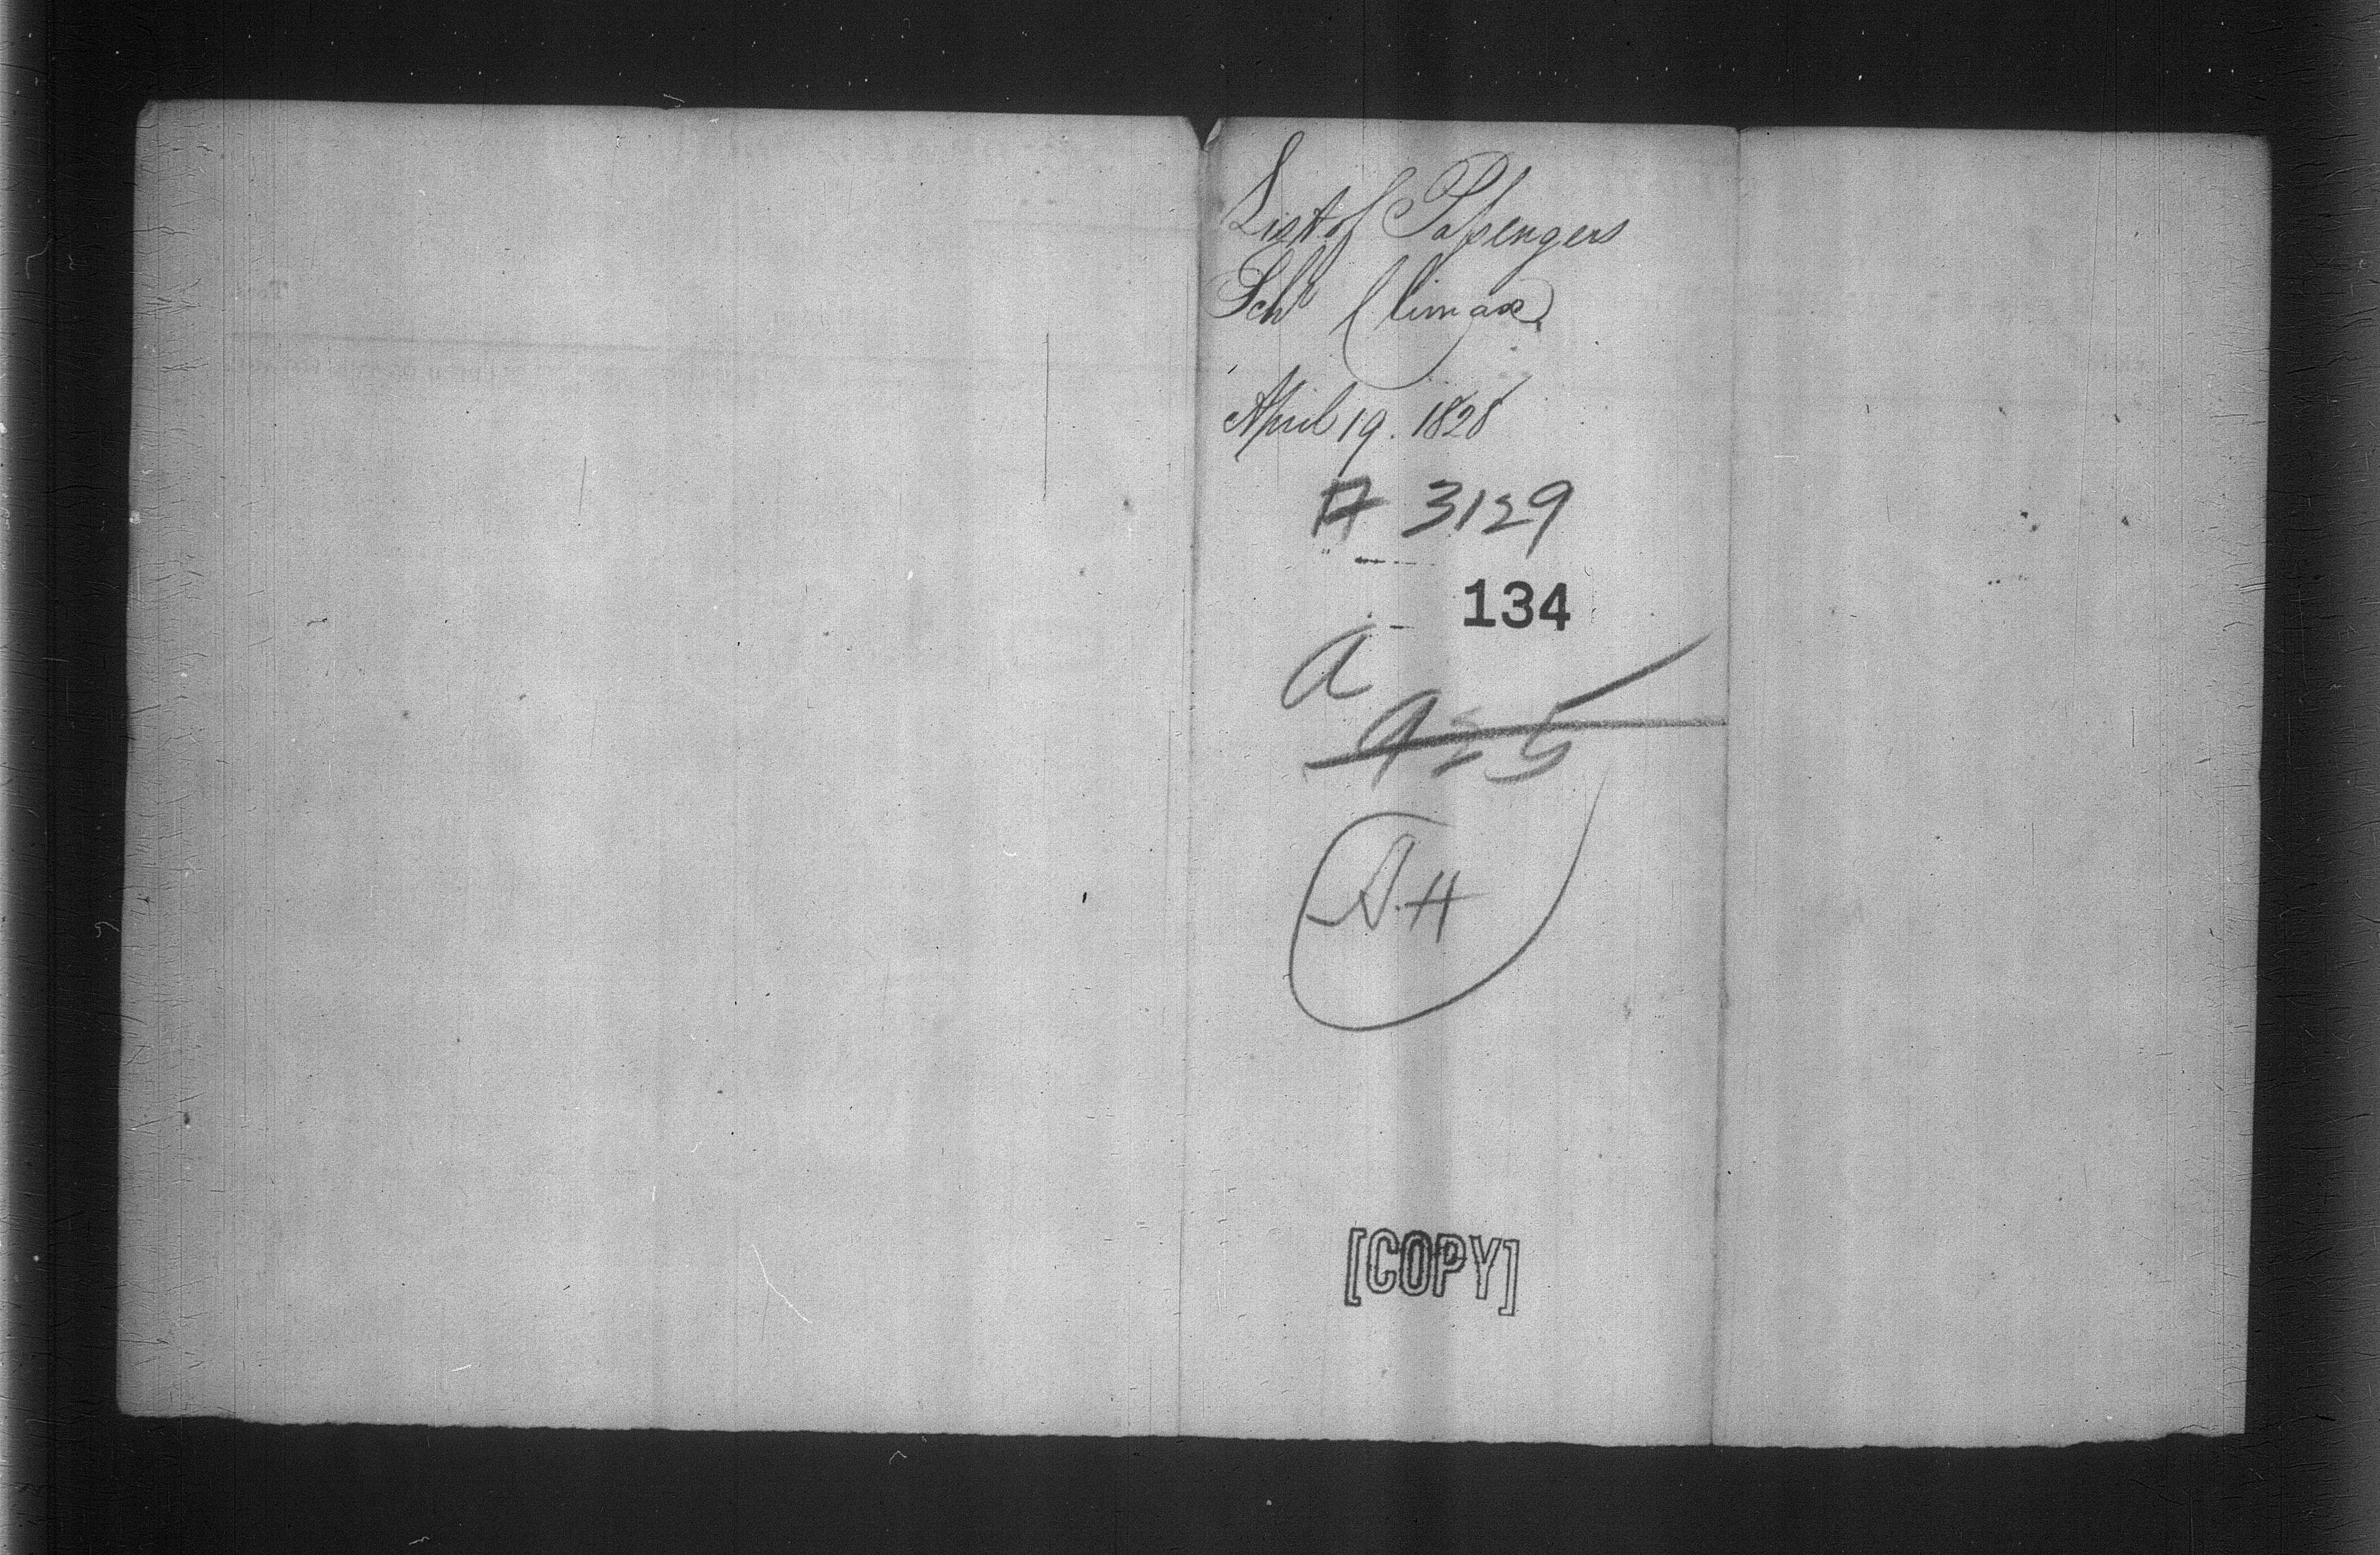 List of Passengers
Schr Climax
April 19. 1828
A 3129
134
a
925
A.H
[COPY]